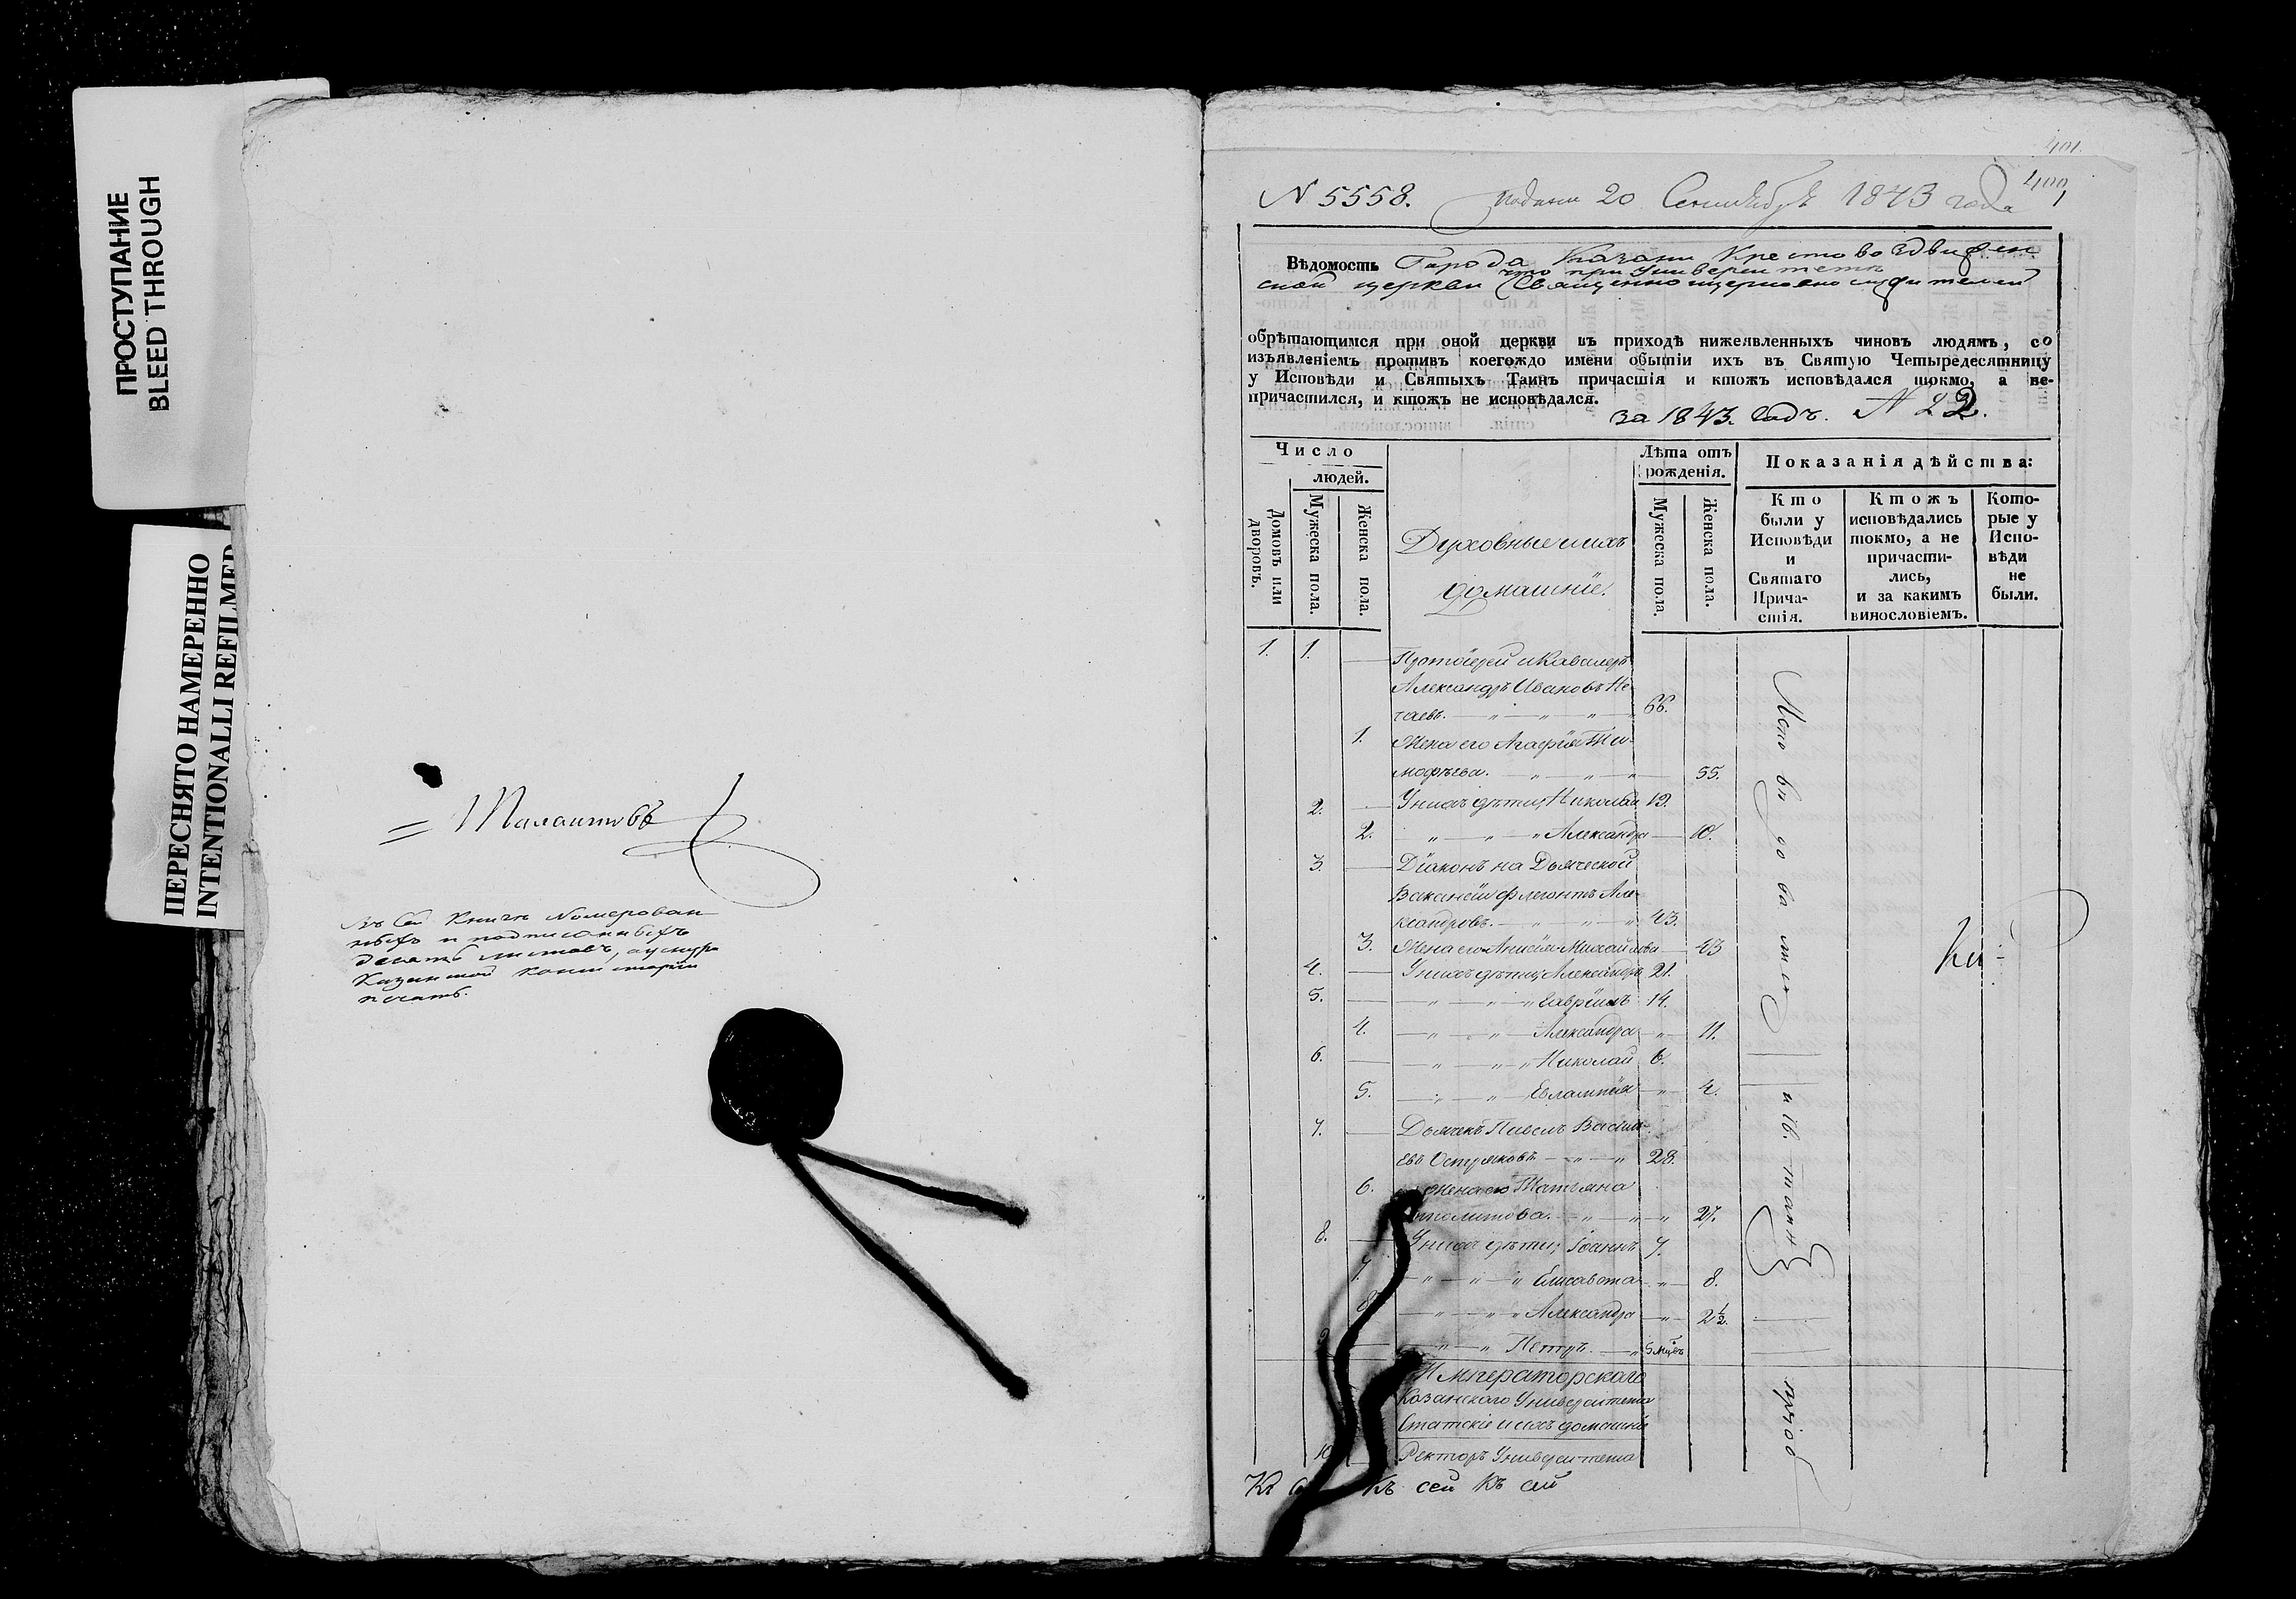 ПРОСТУПАНИЕ
BLEED THROUGH
ПЕРЕСНЯТО НАМЕРЕННО
INTENTIONALLI REFILMED
Въ сей книгѣ номерован
ныхъ и подписанныхъ
десять листовъ, у шнура
Казанской консисторіи
печать.
401.
400
N 5558. Подани 20 Сентября 1843 года
Вѣдомость Города Казани Крестовоздвижен
что при Университетѣ
ской церкви Священноцерковнослужителей
обрѣтающимся при оной церкви въ приходѣ нижеявленныхъ чиновъ людямъ, со
изъявленіемъ противъ коегождо имени обытіи ихъ въ Святую Четыредесятницу
у Исповѣди и Святыхъ Таинъ причастія и ктожъ исповѣдался токмо, а не-
причастился, и ктожъ не исповѣдался.
за 1843. Годъ. N 22.
Число
людей.
Домовъ или дворовъ.
Мужеска пола.
Женска пола.
Духовные и ихъ
домашніе.
Лѣта отъ
рожденія.
Мужеска пола.
Женска пола.
Показанія дѣйства:
Кто
были у
Исповѣди
и
Святаго
Прича-
стія.
Ктожъ
исповѣдались
токмо, а не
причасти-
лись,
и за какимъ
винословіемъ.
Кото-
рые у
Испо-
вѣди
не
были.
1. 1. Протоіерей и Кавалеръ
Александръ Ивановъ Не-
чаевъ. 66.
1. Жена его Агафія Ти-
мофѣева. 55.
2. У нихъ дѣти, Николай 12.
2. Александра 10.
3. Діаконъ на Дьяческой
Вакансіи Флегонтъ Але-
ксандровъ. 43.
3. Жена его Анисія Михайлова 43
4. У нихъ дѣти, Александръ 21.
5. Гавріилъ 14.
4. Александра 11.
6. Николай 6.
5. Евлампія 4.
7. Дьячекъ Павелъ Василь-
евъ Остряковъ 28.
6. Жена его Татьяна
27.
8. У нихъ дѣти, Іоаннъ 7.
7. Елисавета 8.
8 Александра 2½.
9 Петръ. 5 мцъвъ
Императорскаго
Казанскаго Университета
Статскіе и ихъ домашніе
10 Ректоръ Университета
Исповѣдовались
и Св. таинъ
пріоб
Къ сей Къ сей